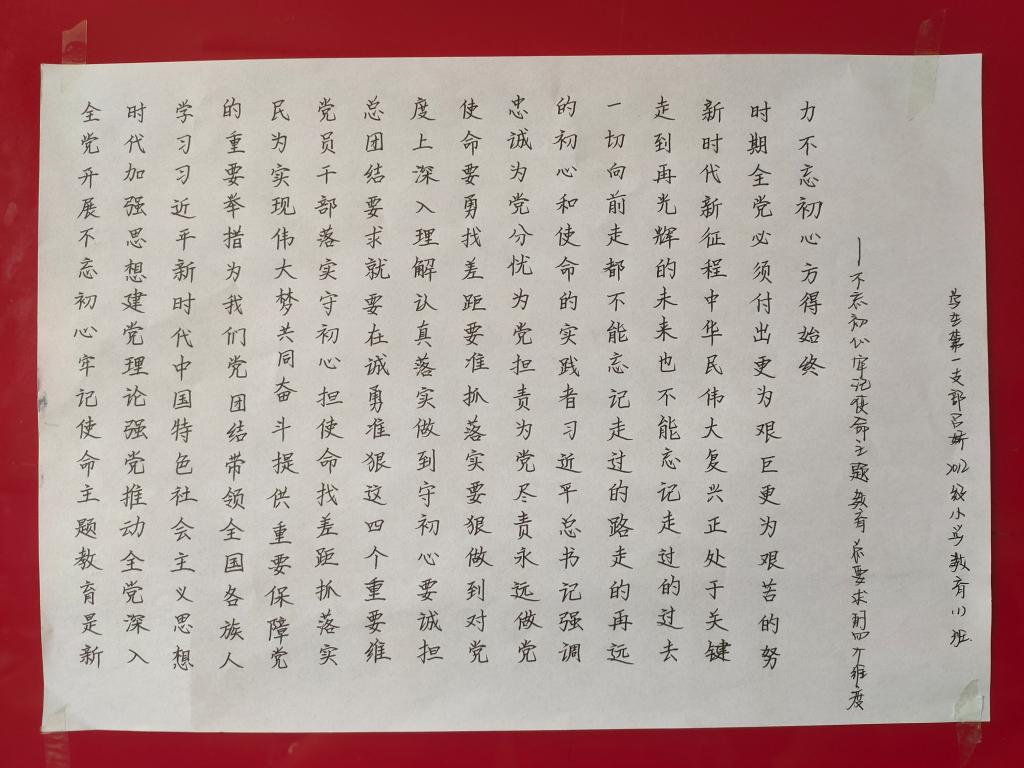 全党开展不忘初心牢记使命主题教育是新
时代加强思想建党理论强党推动全党深入
学习习近平新时代中国特色社会主义思想
的重要举措为我们党团结带领全国各族人
民为实现伟大梦共同奋斗提供重要保障党
党员干部落实守初心担使命找差距抓落实
总团结要求就要在诚勇准狠这四个重要维
度上深入理解认真落实做到守初心要诚担
使命要勇找差距要准抓落实要狠做到对党
忠诚为党分忧为党担责为党尽责永远做党
的初心和使命的实践者习近平总书记强调
一切向前走都不能忘记走过的路走的再远
走到再光辉的未来也不能忘记走过的过去
新时代新征程中华民伟大复兴正处于关键
时期全党必须付出更为艰巨更为艰苦的努
力不忘初心方得始终
——不忘初心牢记使命主题教育总要求的四个维度
学生第一支部吕 2012级小学教育(1)班